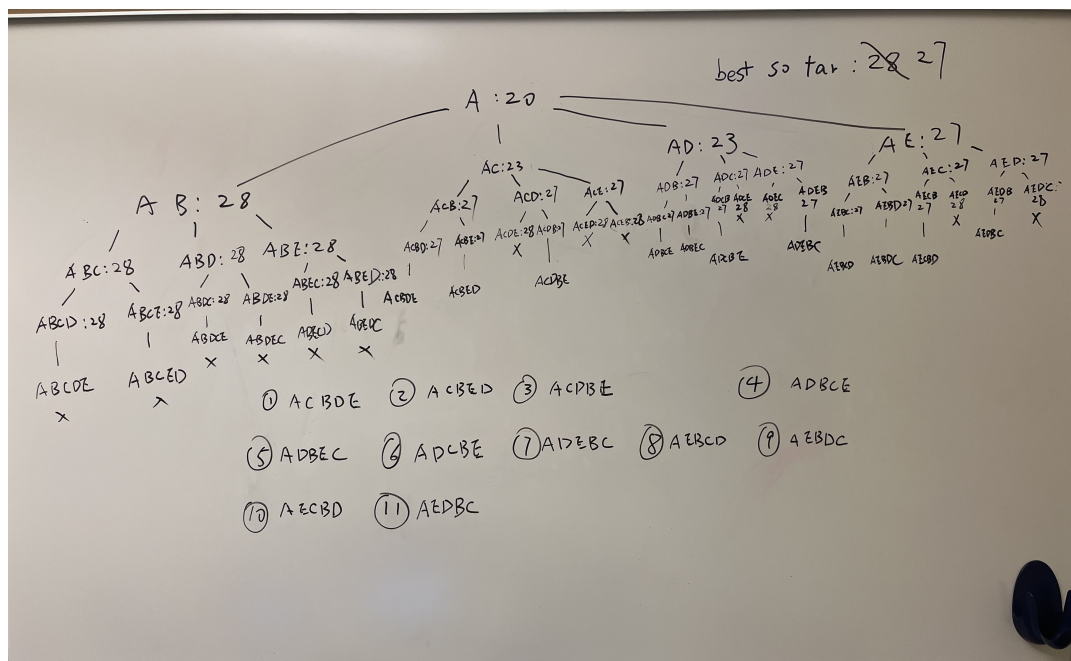 best so far : 28 27
A : 20
A B : 28
AC : 23
AD : 23
AE : 27
ABC : 28
ABD : 28
ABE : 28
ACB : 27
ACD : 27
ACE : 27
ADB : 27
ADC : 27
ADE : 27
AEB : 27
AEC : 27
AED : 27
ABCD : 28
ABCE : 28
ABDC : 28
ABDE : 28
ABEC : 28
ABED : 28
ACBD : 27
ACBE : 27
ACDE : 28
ACDB : 27
ACED : 28
ACEB : 28
ADBC : 27
ADBE : 27
ADCB 27
ADCE 28
ADEC 28
ADEB 27
AEBC : 27
AEBD : 27
AECB 27
AECD 28
AEDB 27
AEDC : 28
X X X X X X X
ABCDE
ABCED
ABDCE
ABDEC
ABEDC
ACBDE
ACBED
ACDBE
ADBCE
ADBEC
ADCBE
ADEBC
AEBCD
AEBDC
AECBD
AEDBC
X X X X X X
① ACBDE ② ACBED ③ ACDBE ④ ADBCE
⑤ ADBEC ⑥ ADCBE ⑦ ADEBC ⑧ AEBCD ⑨ AEBDC
⑩ AECBD ⑪ AEDBC